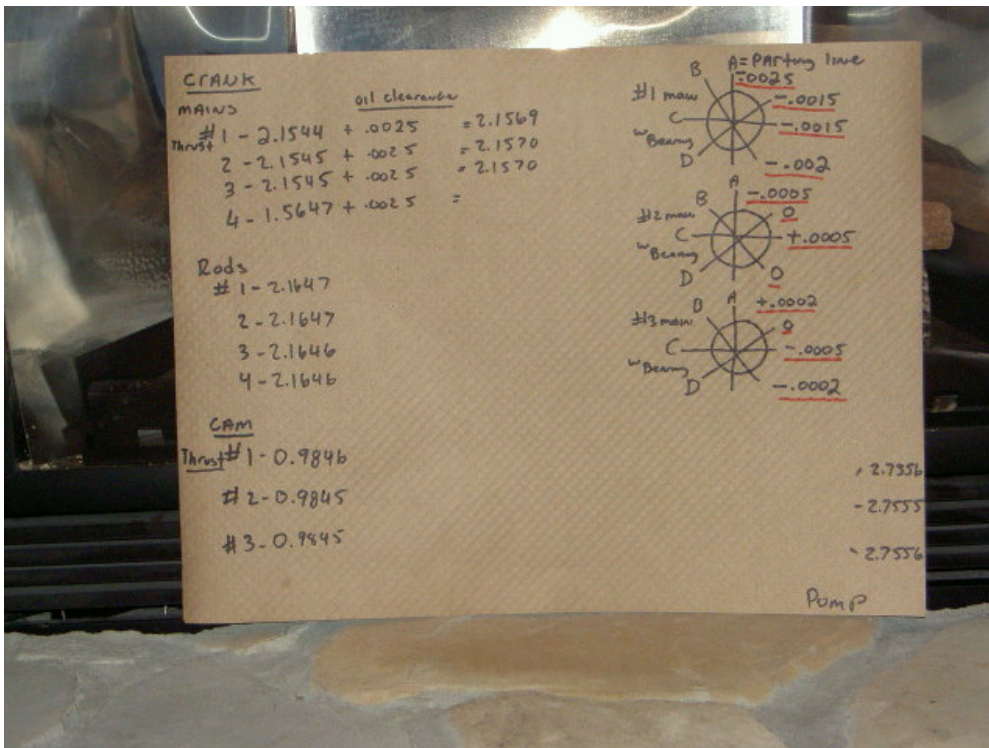 CRANK
MAINS
oil clearance
Thrust #1 - 2.1544 + .0025 = 2.1569
2 - 2.1545 + .0025 = 2.1570
3 - 2.1545 + .0025 = 2.1570
4 - 1.5647 + .0025 =
Rods
#1 - 2.1647
2 - 2.1647
3 - 2.1646
4 - 2.1646
CAM
Thrust #1 - 0.9846
#2 - 0.9845
#3 - 0.9845
A = PArting line
#1 main
w Bearing
A -.0025
B -.0015
C -.0015
D -.002
#2 main
w Bearing
A -.0005
B 0
C +.0005
D 0
#3 main
w Bearing
A +.0002
B 0
C -.0005
D -.0002
- 2.7556
- 2.7555
- 2.7556
Pump